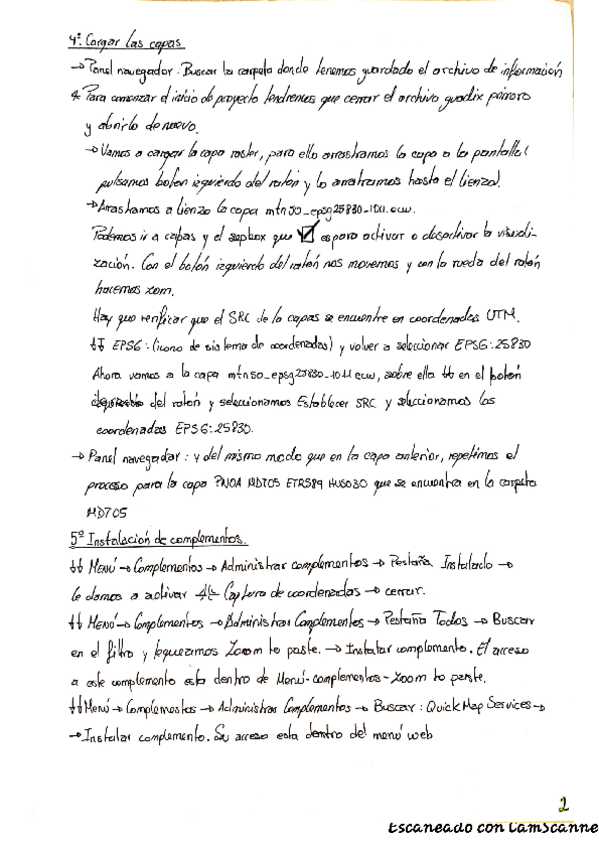 4º. Cargar las capas.
→ Panel navegador. Buscar la carpeta donde tenemos guardado el archivo de información
Para comenzar el inicio de proyecto tendremos que cerrar el archivo guadix
y abrirlo de nuevo.
→ Vamos a cargar la capa raster, para ello arrastramos la capa a la pantalla (
pulsamos boton izquierdo del ratón y lo arratramos hasta el lienzo).
→ Arrastramos a lienzo la capa mtn50_epsg25830-1011.ecw.
Podemos ir a capas y el que ☑ es para activar o desactivar la visuali-
zación. Con el botón izquierdo del ratón nos movemos y con la rueda del ratón
hacemos zom.
Hay que verificar que el SRC de la capas se encuentre en coordenadas UTM.
↓↓ EPSG: (icono de sistema de coordenadas) y volver a seleccionar EPSG: 25830
Ahora vamos a la capa mtn50_epsg25830-1011 ecw, sobre ella ↓↓ en el botón
del ratón y seleccionamos Establecer SRC y seleccionamos las
coordenadas EPSG: 25830.
→ Panel navegador: y del mismo modo que en la capa anterior, repetimos el
proceso para la capa PNOA MDT05 ETRS89 HU3030 que se encuentra en la carpeta
MDT05
5º Instalación de complementos.
↓↓ Menú → Complementos → Administrar complementos → Pestaña Instalado →
le damos a activar Captura de coordenadas → cerrar.
↓↓ Menú → Complementos → Administrar Complementos → Pestaña Todos → Buscar
en el filtro y Zoom to paste. → Instalar complemento. El acceso
a este complemento esta dentro de Menú-complementos-Zoom to paste.
↓↓ Menú → Complementos → Administrar Complementos → Buscar: QuickMap Services →
→ Instalar complemento. Su acceso esta dentro del menú web
2
Escaneado con CamScanne